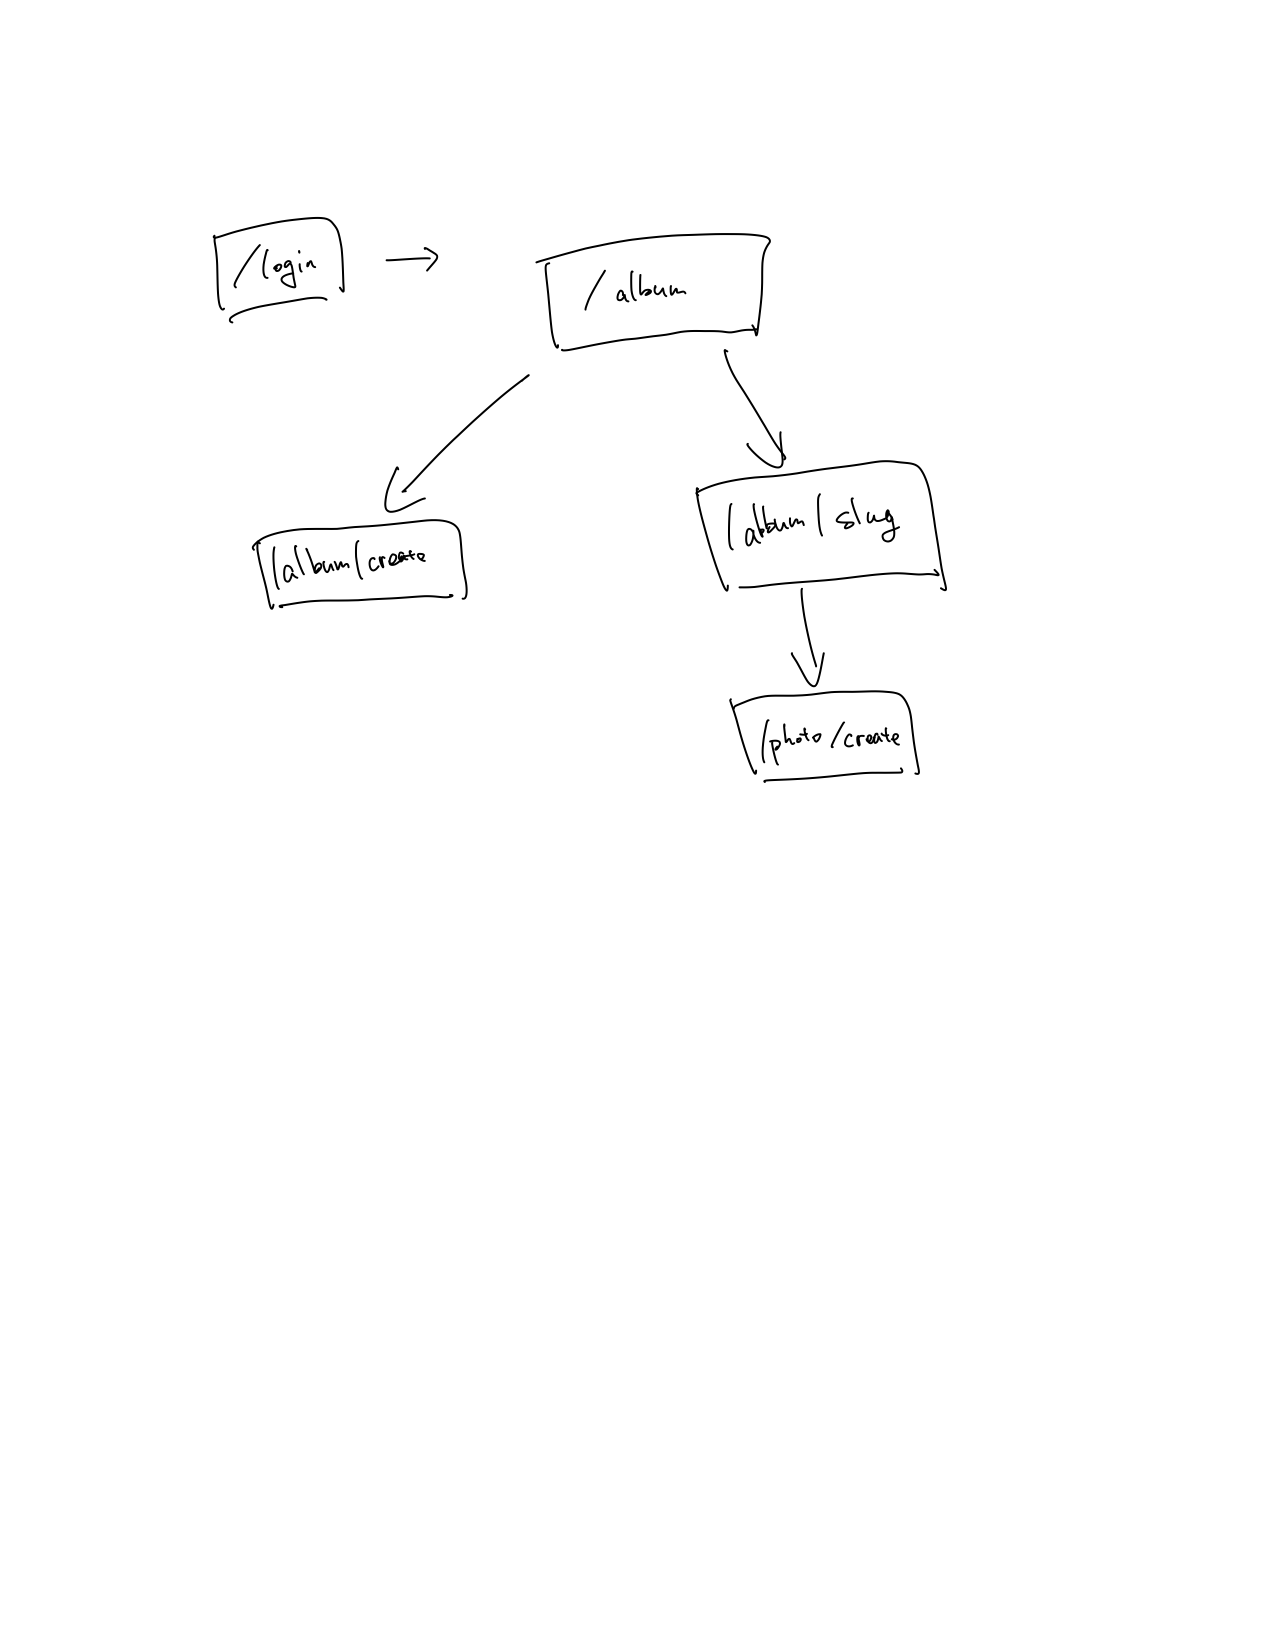 /login
/album
/album/create
/album/slug
/photo/create